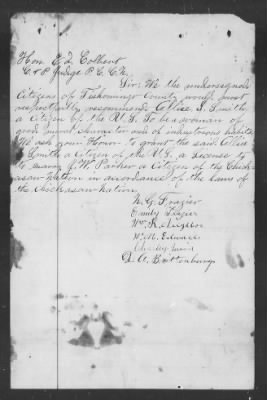 Hon. E. J. Colbert
C. & P. Judge P. C. C. N.
Sir: We the undersigned
Citizens of Tishomingo County would most
respectfully recommend Ollie S. Smith
a Citizen of the U.S. To be a woman of
good moral character and of industrous habits
We ask your Honor to grant the said Ollie
S. Smith a Citizen of the U.S. a License to
to marry W. Parker a Citizen of the Chick-
asaw Nation in accordance of the laws of
the Chickasaw Nation.
N. G. Frazier
Emily Frazier
Wm. R.
W. M. Edwards
Charley
D. A. Brittenburg